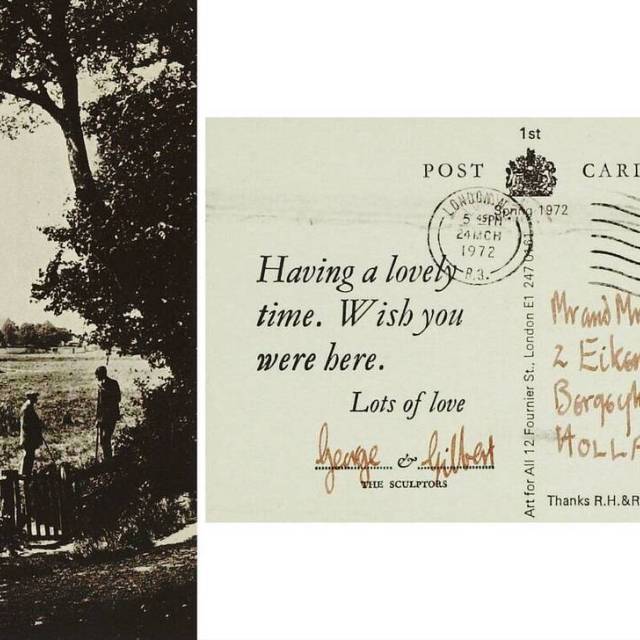 1st
POST CARD
Spring 1972
LONDON
5 45PM
24 MCH
1972
Having a lovely
time. Wish you
were here.
Lots of love
George & Gilbert
THE SCULPTORS
Art for All 12 Fournier St., London E1 247 0161
Mr and Mr
2 Eiker
HOLLA
Thanks R.H.&R